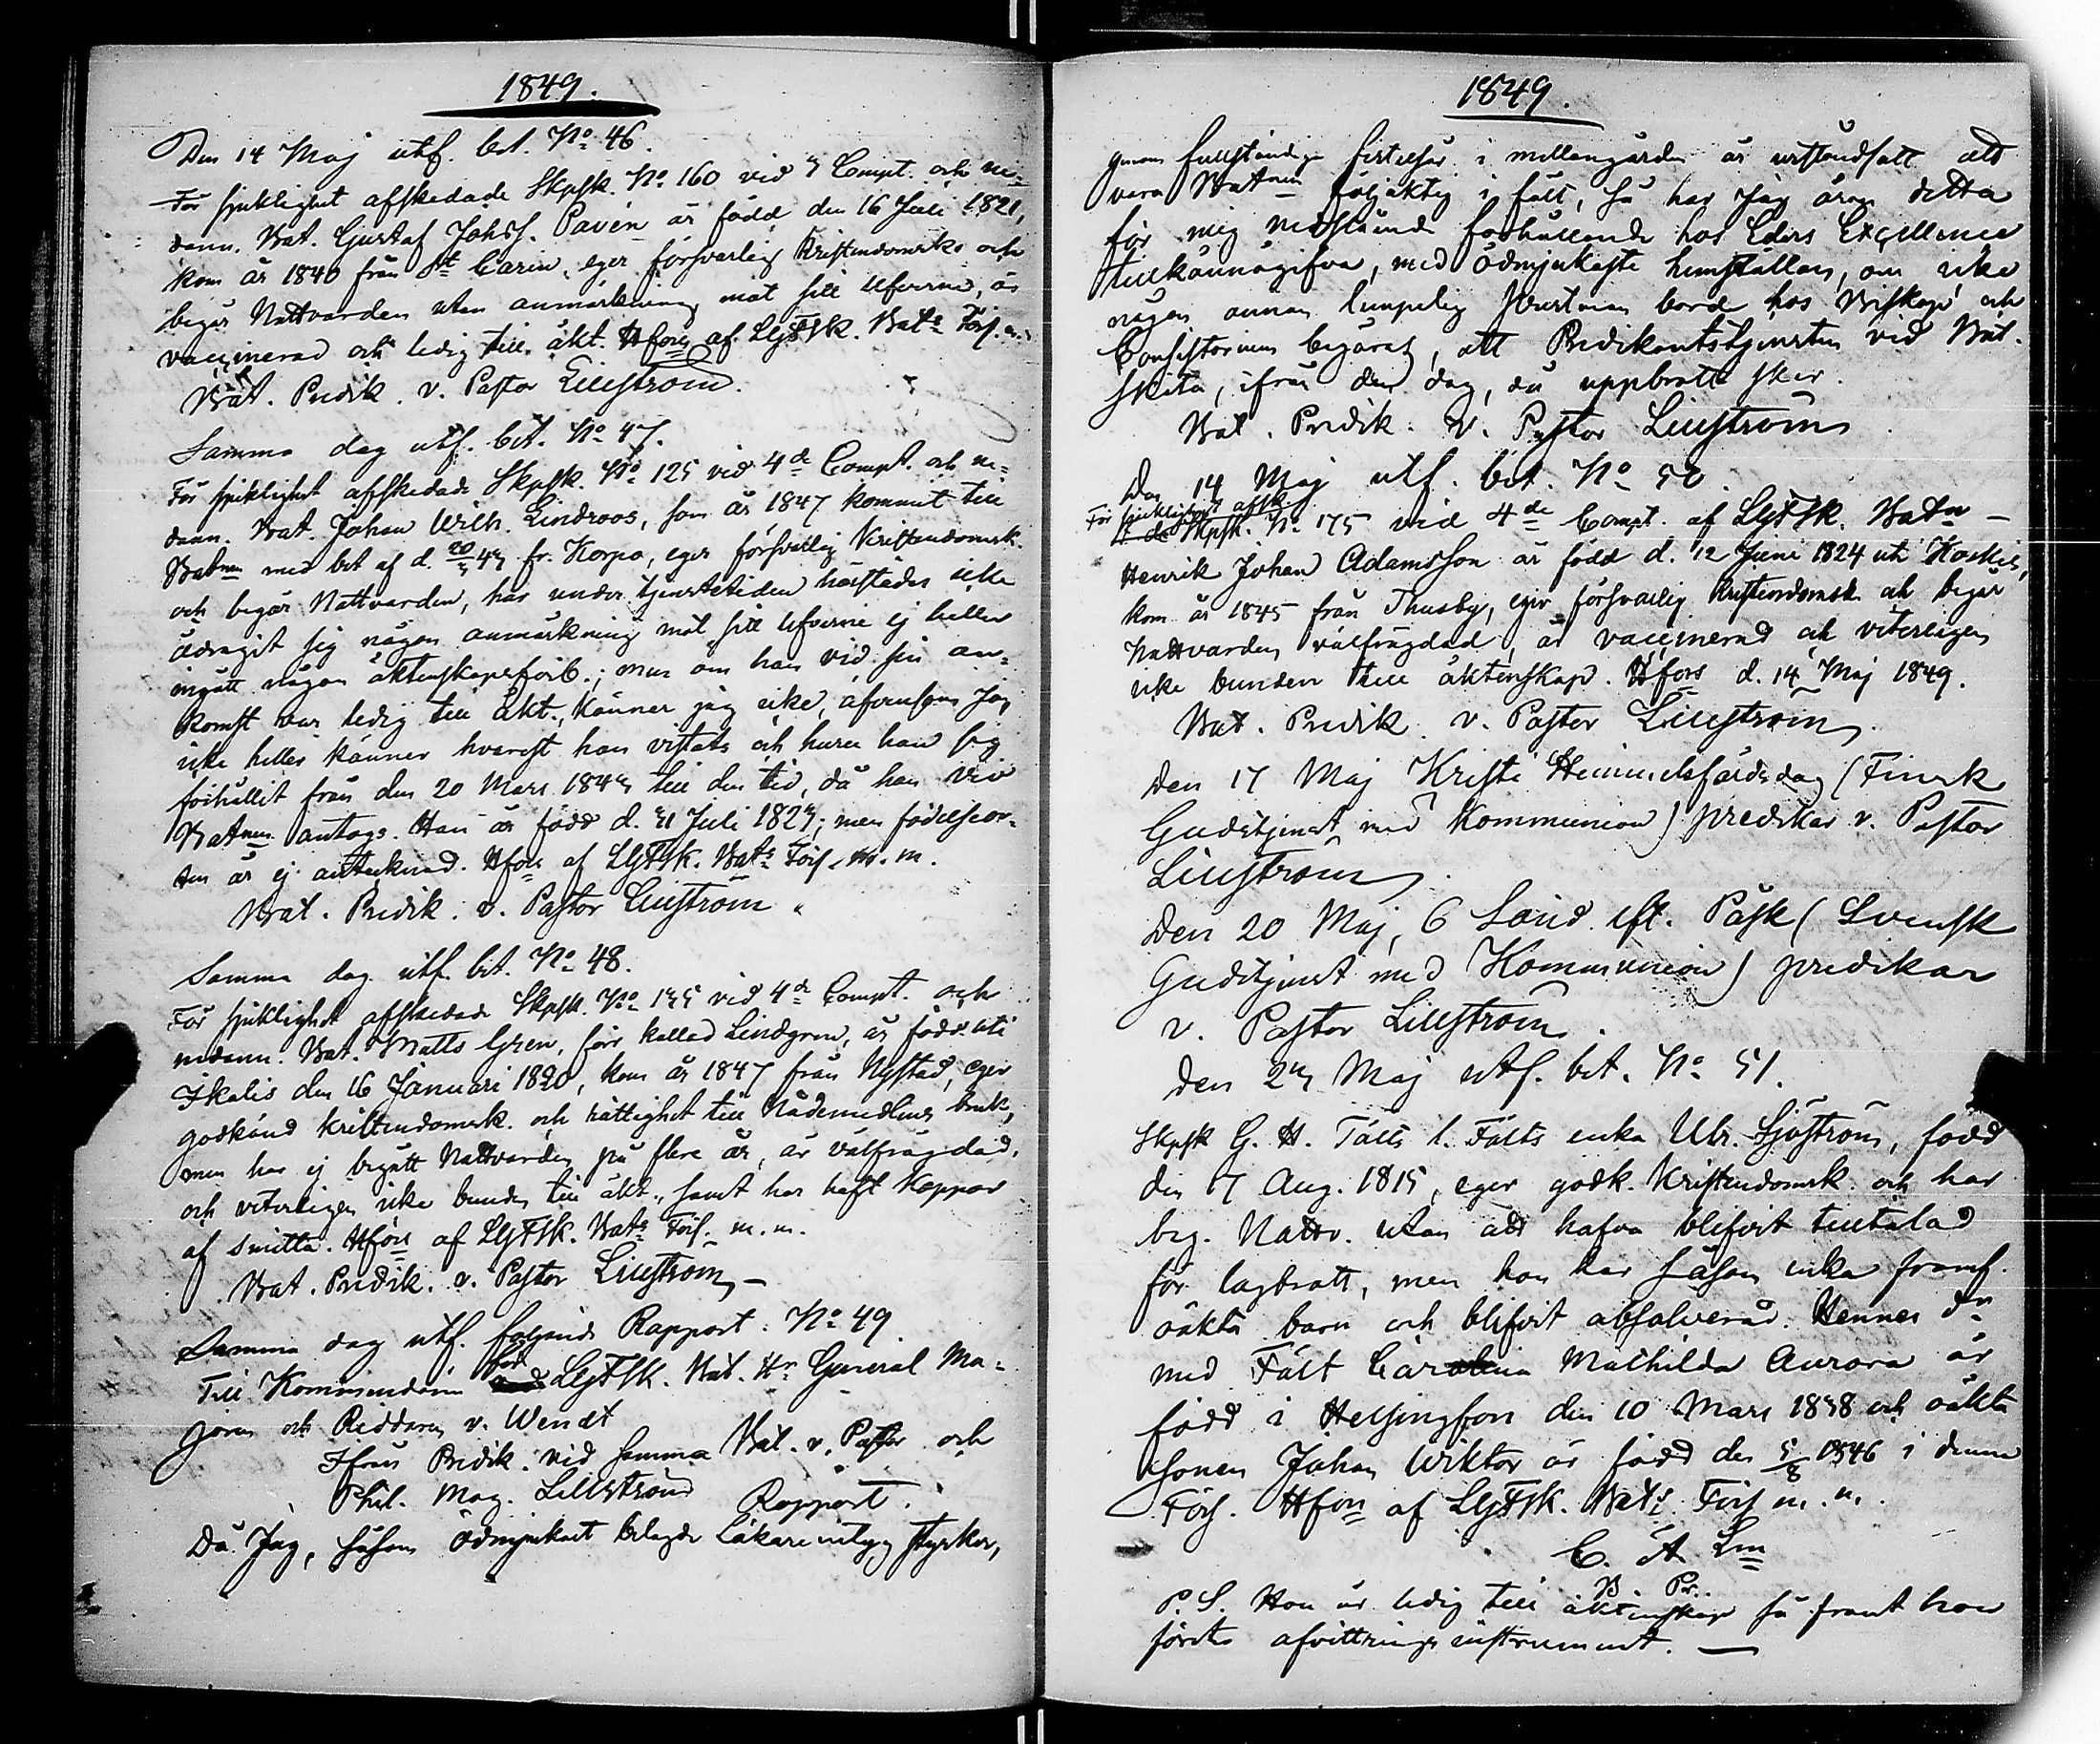 1849.
Den 14 Maj utf. bet. No 46.
För sjuklighet afskedade Skpsk. No 160 vid Compt. och ne-
dann. Bat. Gustaf Johss. Pavén är född den 16 Juli 1821,
kom år 1840 från St Carin, eger försvarlig Kristendomsk. och
begår Nattvarden utan anmärkning mot sitt lefverne, är
vaccinerad och ledig till äkt. Hfors af LGFSk. Bats Förs. m.
Bat. Predik. v. Pastor Lillström.
Samma dag utf. bet. No 47.
För sjuklighet afskedade Skpsk. No 125 vid 4de Compt. och ne-
dann. Bat. Johan Wilh. Lindroos, som år 1847 kommit till
Batnen med bet af d. fr. Korpo, eger försvarlig Kristendomsk.
och begår Nattvarden, har under tjenstetiden härstädes icke
ådragit sig någon anmärkning mot sitt lefverne ej heller
ingått någon äktenskapsförb.; men om han vid sin an-
komst var ledig till äkt., känner jag icke, äfvensom jag
icke heller känner hvarest han vistats och huru han sig
förhållit från den 20 Mars till den tid, då han vid
Batnen antogs. Han är född d. Juli; men födelseor-
ten är ej antecknad. Hfors af LGFSk. Bats Förs. m. m.
Bat. Predik. v. Pastor Lillström
Samma dag utf. bet. No 48.
För sjuklighet afskedade Skpsk. No vid 4de Compt. och
nedann. Bat. Matts Gren, förr kallad Lindgren, är född uti
Ikalis den 16 Januari 1820, kom år 1847 från Nystad, eger
godkänd kristendomsk. och rättighet till Nådemedlens bruk,
men har ej begått Nattvarden på flere år, är välfrägdad,
och veterligen icke bunden till äkt., samt har haft Koppor
af smitta. Hfors af LGFSk. Bats Förs. m. m.
Bat. Predik. v. Pastor Lillström
Samma dag utf. följande Rapport. No 49.
Till Kommendören för LGFSk. Bat. Hr General Ma-
joren och Riddaren v. Wendt
Ifrån Predik. vid samma Bat. v. Pastor och
Phil. Mag. Lillström
Rapport.
Då Jag, såsom ödmjukast bilagde Läkareintyg styrker,
1849.
genom fullständige i mellangärden är urståndsatt att
vara Batnen följaktig i fält, så har Jag äran detta
för mig förhållande hos Eders Excellence
tillkännagifva, med ödmjukaste hemställan, om icke
någon annan lämpelig borde hos Biskopen och
Consistorium begäras, att Predikantstjensten vid Bat.
sköta, ifrån den dag, då uppbrott sker.
Bat. Predik. v. Pastor Lillström
Den 14 Maj utf. bet. No 50.
För sjuklighet afsk.
Skpsk. No 175 vid 4de Compt. af LGFSk. Batn
Henrik Johan Adamsson är född d. 12 Juni 1824 uti Koskis,
kom år 1845 från Thusby, eger försvarlig Kristendomsk. och begår
Nattvarden välfrägdad, är vaccinerad och veterligen
icke bunden till äktenskap. Hfors d. 14 Maj 1849.
Bat. Predik. v. Pastor Lillström
Den 17 Maj Kristi Himmelsfärdsdag (Finsk
Gudstjenst med Kommunion) predikar v. Pastor
Lillström.
Den 20 Maj, 6 Sönd. eft. Påsk (Svensk
Gudstjenst med Kommunion) predikar
v. Pastor Lillström.
Den Maj utf. bet. No 51.
Skpsk G. H. Tälts l. Fälts enka Ulr. Sjöström, född
den 7 Aug. 1815, eger godk. Kristendomsk. och har
beg. Nattv. utan att hafva blifvit tilltalad
för lagbrott, men hon har såsom enka framf.
oäkta barn och blifvit absolverad. Hennes dr
med Fält Carolina Mathilda Aurora är
född i Helsingfors den 10 Mars 1838 och oäkta
sonen Johan Wiktor är född den 5/8 1846 i denna
Förs. Hfors af LGFSk. Bats Förs m. m.
C. A. Lm
B Pr.
P. S. Hon är ledig till äktenskap så framt hon
företer afvittringsinstrument.